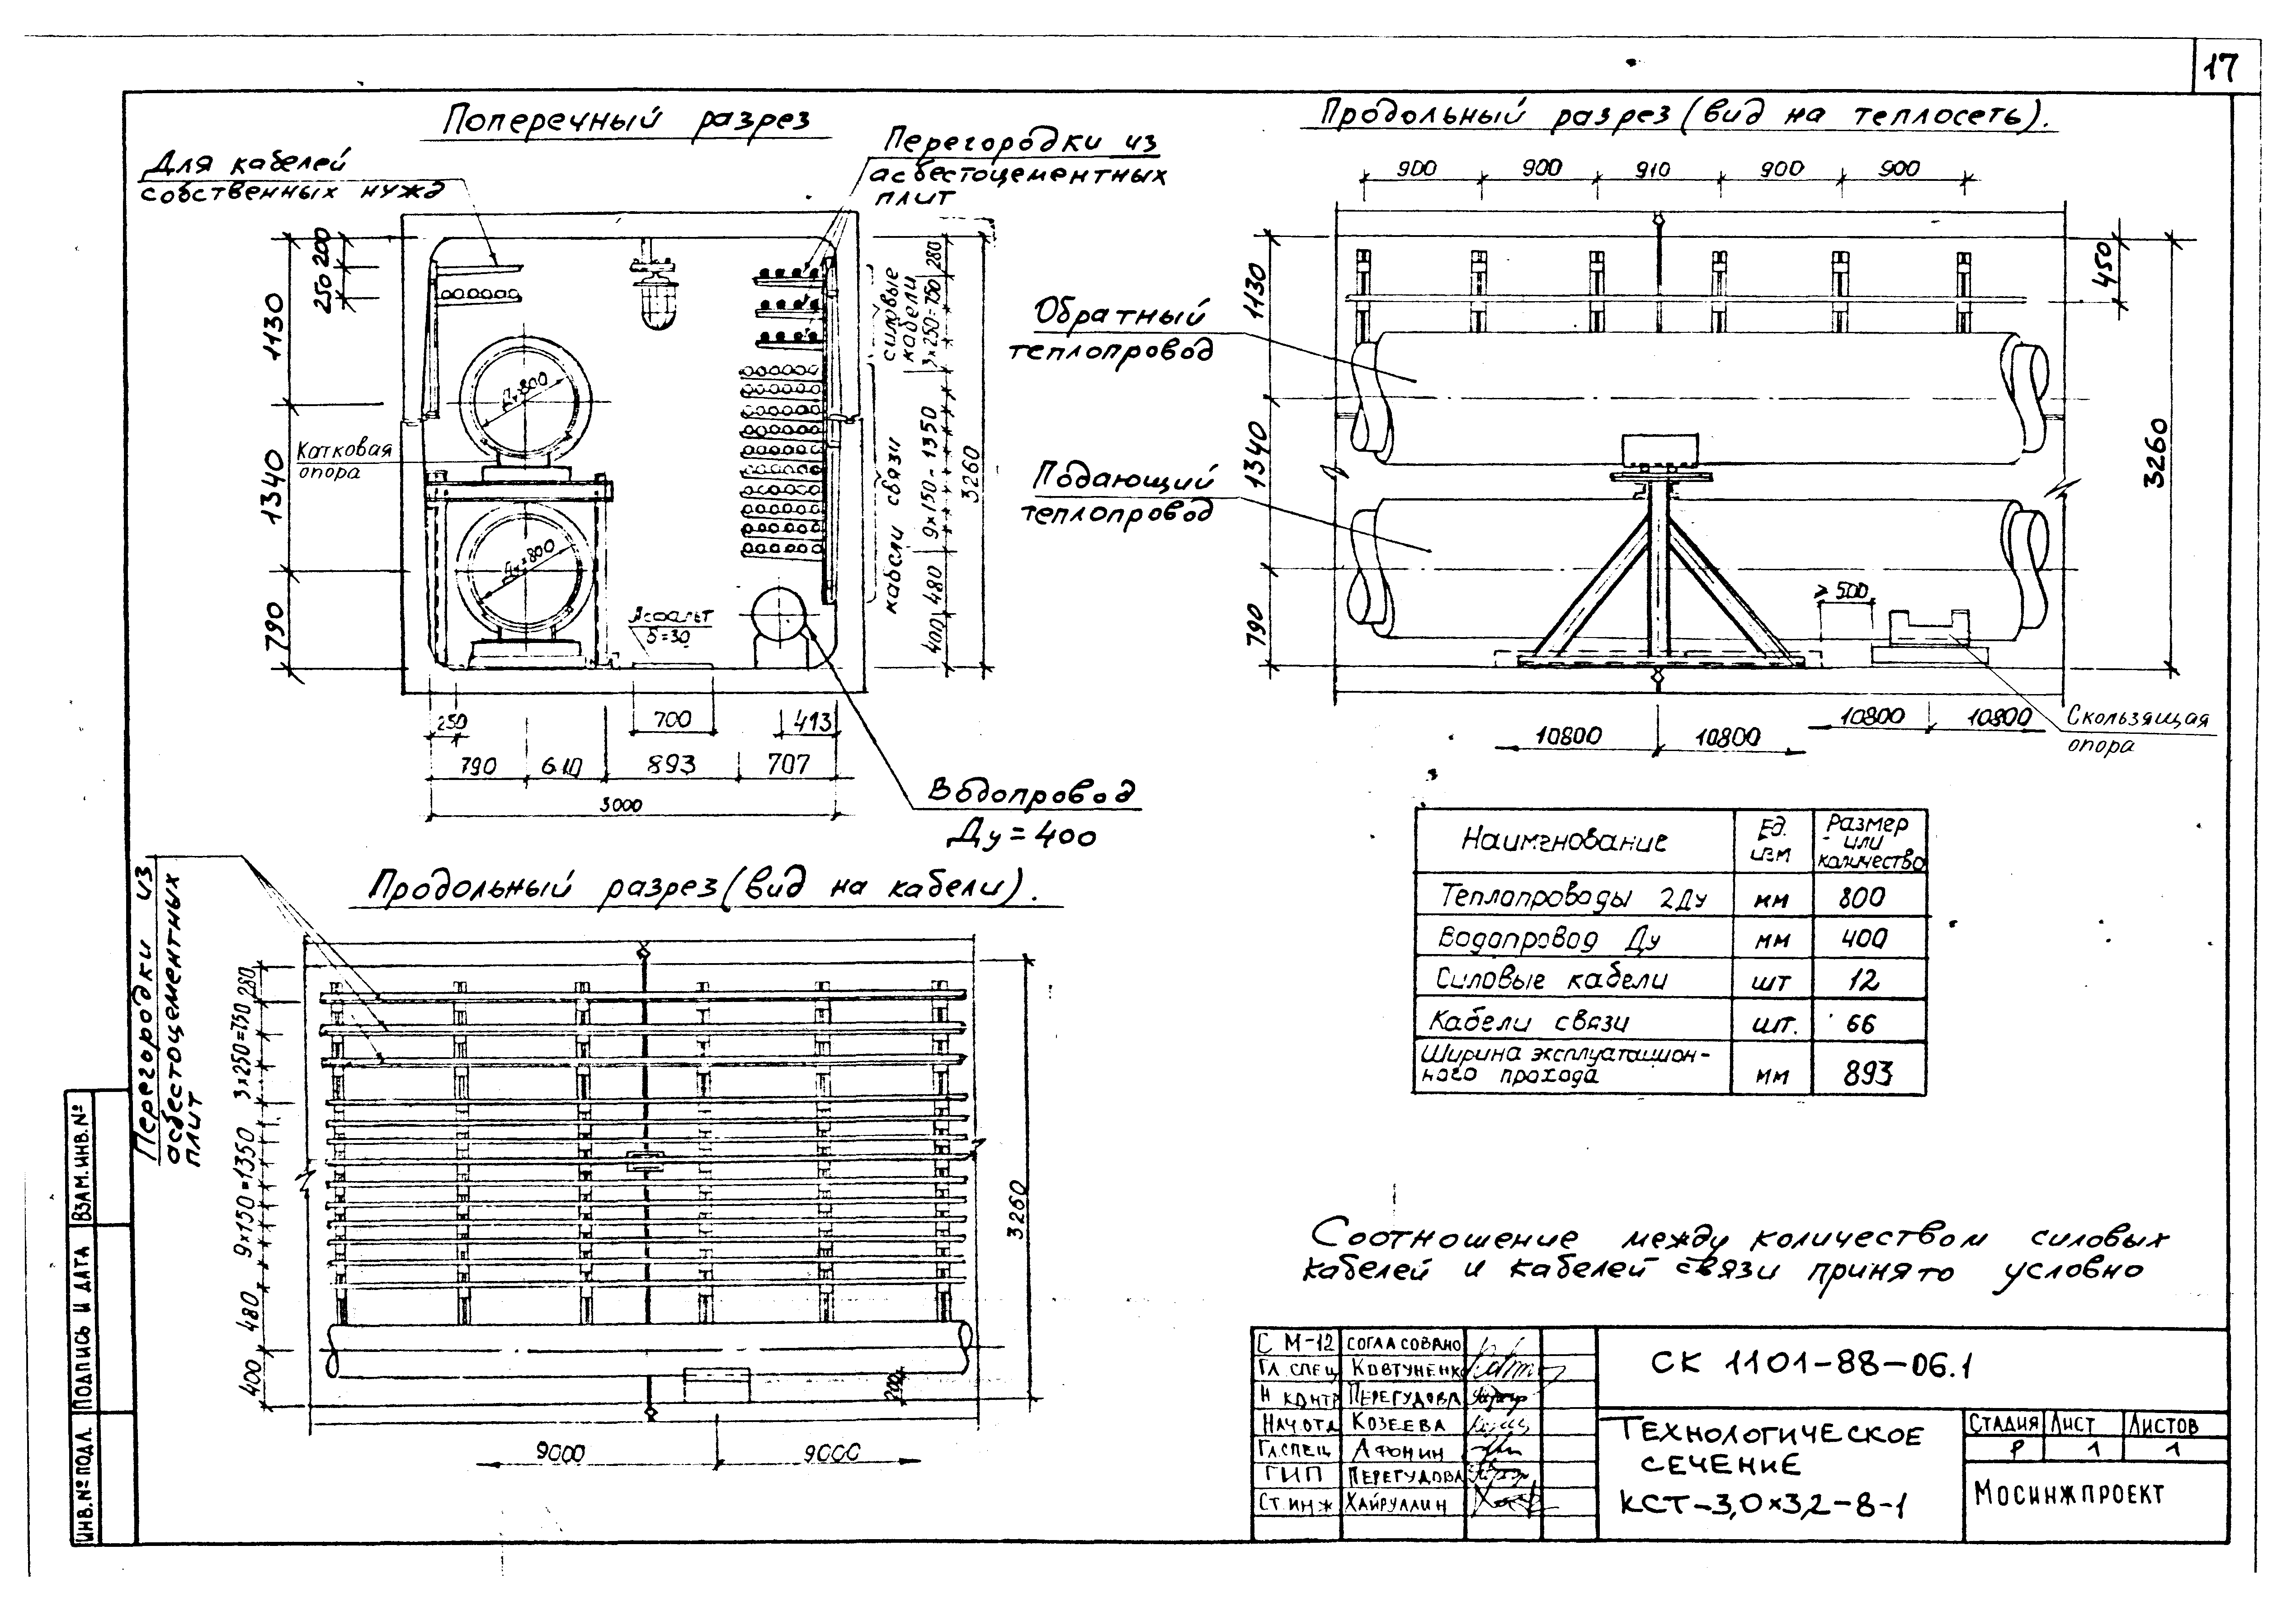 17
Поперечный разрез
Для кабелей
собственных нужд
Перегородки из
асбестоцементных
плит
200
250
1130
1340
790
Ду=800
Катковая
опора
Ду=800
Асфальт
δ=30
силовые
кабели
кабели связи
280
3×250=750
9×150=1350
480
400
3260
250
700
413
790
610
893
707
3000
Водопровод
Ду=400
Продольный разрез (вид на теплосеть).
900
900
910
900
900
1130
1340
790
Обратный
теплопровод
Подающий
теплопровод
450
3260
≥500
10800
10800
10800
10800
Скользящая
опора
Продольный разрез (вид на кабели).
Перегородки из
асбестоцементных
плит
280
3×250=750
9×150=1350
480
400
3260
200
9000
9000
Наименование
Ед.
изм
Размер
или
количество
Теплопроводы 2Ду мм 800
Водопровод Ду мм 400
Силовые кабели шт 12
Кабели связи шт. 66
Ширина эксплуатацион-
ного прохода мм 893
Соотношение между количеством силовых
кабелей и кабелей связи принято условно
С М-12 СОГЛАСОВАНО
ГЛ СПЕЦ КОВТУНЕНКО
Н КОНТР ПЕРЕГУДОВА
НАЧ ОТД КОЗЕЕВА
ГЛ СПЕЦ АФОНИН
ГИП ПЕРЕГУДОВА
СТ. ИНЖ ХАЙРУЛЛИН
СК 1101-88-06.1
ТЕХНОЛОГИЧЕСКОЕ
СЕЧЕНИЕ
КСТ-3,0×3,2-8-1
СТАДИЯ ЛИСТ ЛИСТОВ
Р 1 1
МОСИНЖПРОЕКТ
ИНВ.№ ПОДЛ. ПОДПИСЬ И ДАТА ВЗАМ.ИНВ.№